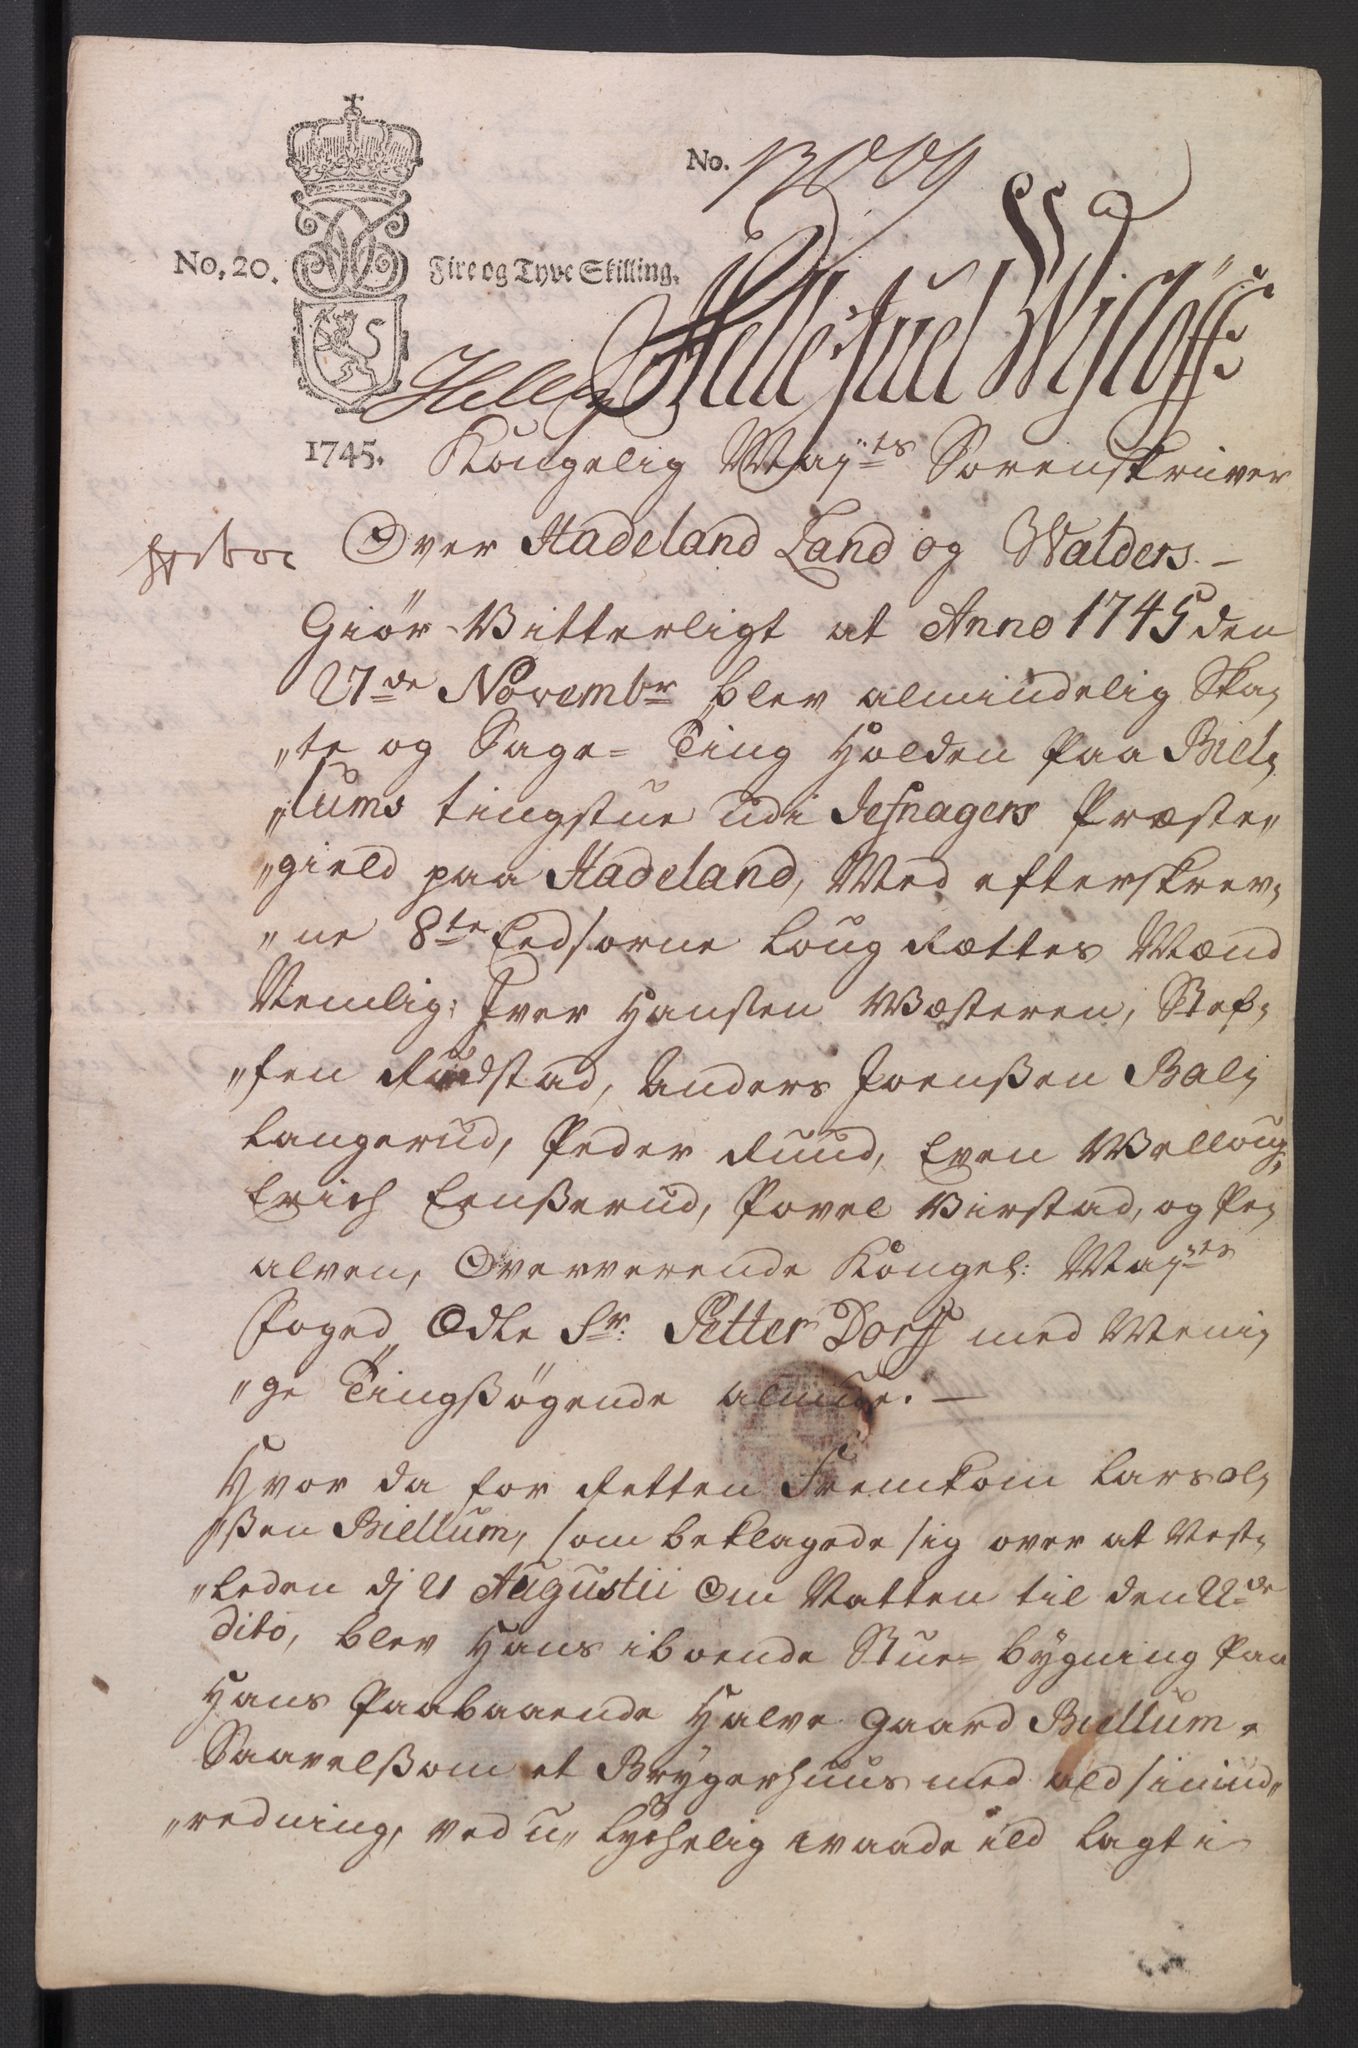 No. 13009
No. 20. Fire og Tyve Skilling.
1745.
Hellestuel Wisløff
Kongelig May:ts Sorenskriver
Over Hadeland Land og Walders. -
Giör Vitterligt at Anno 1745 den
27de Novembr blev almindelig Ska,
"te og Sage= Ting holden paa Biel,
"lums tingstue udi Jefnagers Præste"
"gield paa Hadeland, Med efterskrev,
"ne 8te Eedsorne Loug Rættes Mænd
Nemlig: Iver Hansen Wæsteren, Stef,
"fen Rudstad, Anders Joenßen Bal,
Langerud, Peder Ruud, Even Velloug,
Erich Eenßerud, Povel Birstad, og Pe,
alven, Overværende Kongel: May:ts
Foged Edle Sr. Petter Dorf med Meni,
"ge Tingßögende almue. -
Hvor da for Retten Fremkom Lars Ol,
"ßen Biellum, som beklagede sig over at Nest,
"leden dj 21 Augustii Om Natten til den 22de
dito, blev Hans iboende Stue= bygning paa
Hans Paaboende Halve Gaard Biellum,
Saavelßom et Bryggerhuus med ald sin ind"
"redning, ved u" lychelig vaade ild lagt i